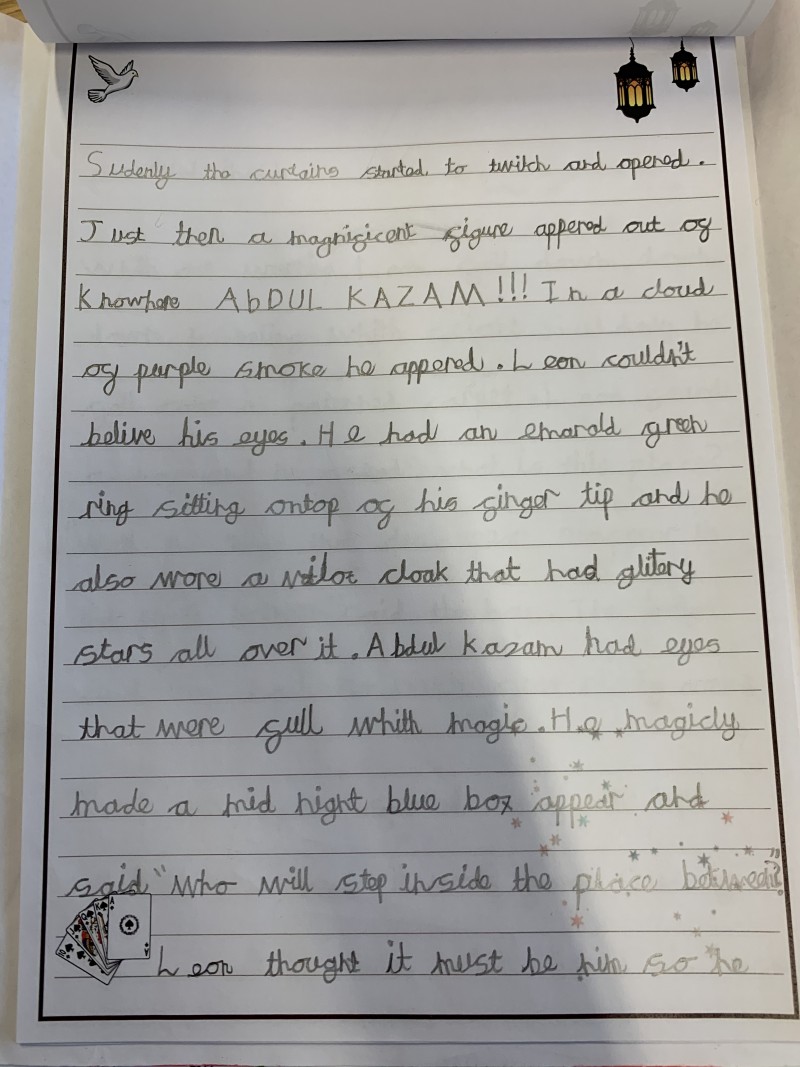 Sudenly the curtains started to twitch and opened.
Just then a magnificent figure appered out of
Knowhere AbDUL KAZAM!!! In a cloud
of purple smoke he appered. Leon couldn't
belive his eyes. He had an emarald green
ring sitting ontop of his finger tip and he
also wore a vilot cloak that had glitary
stars all over it. Abdul Kazam had eyes
that were full whith magic. He magicly
made a mid night blue box appear and
said "Who will step inside the place between?"
Leon thought it must be him so he